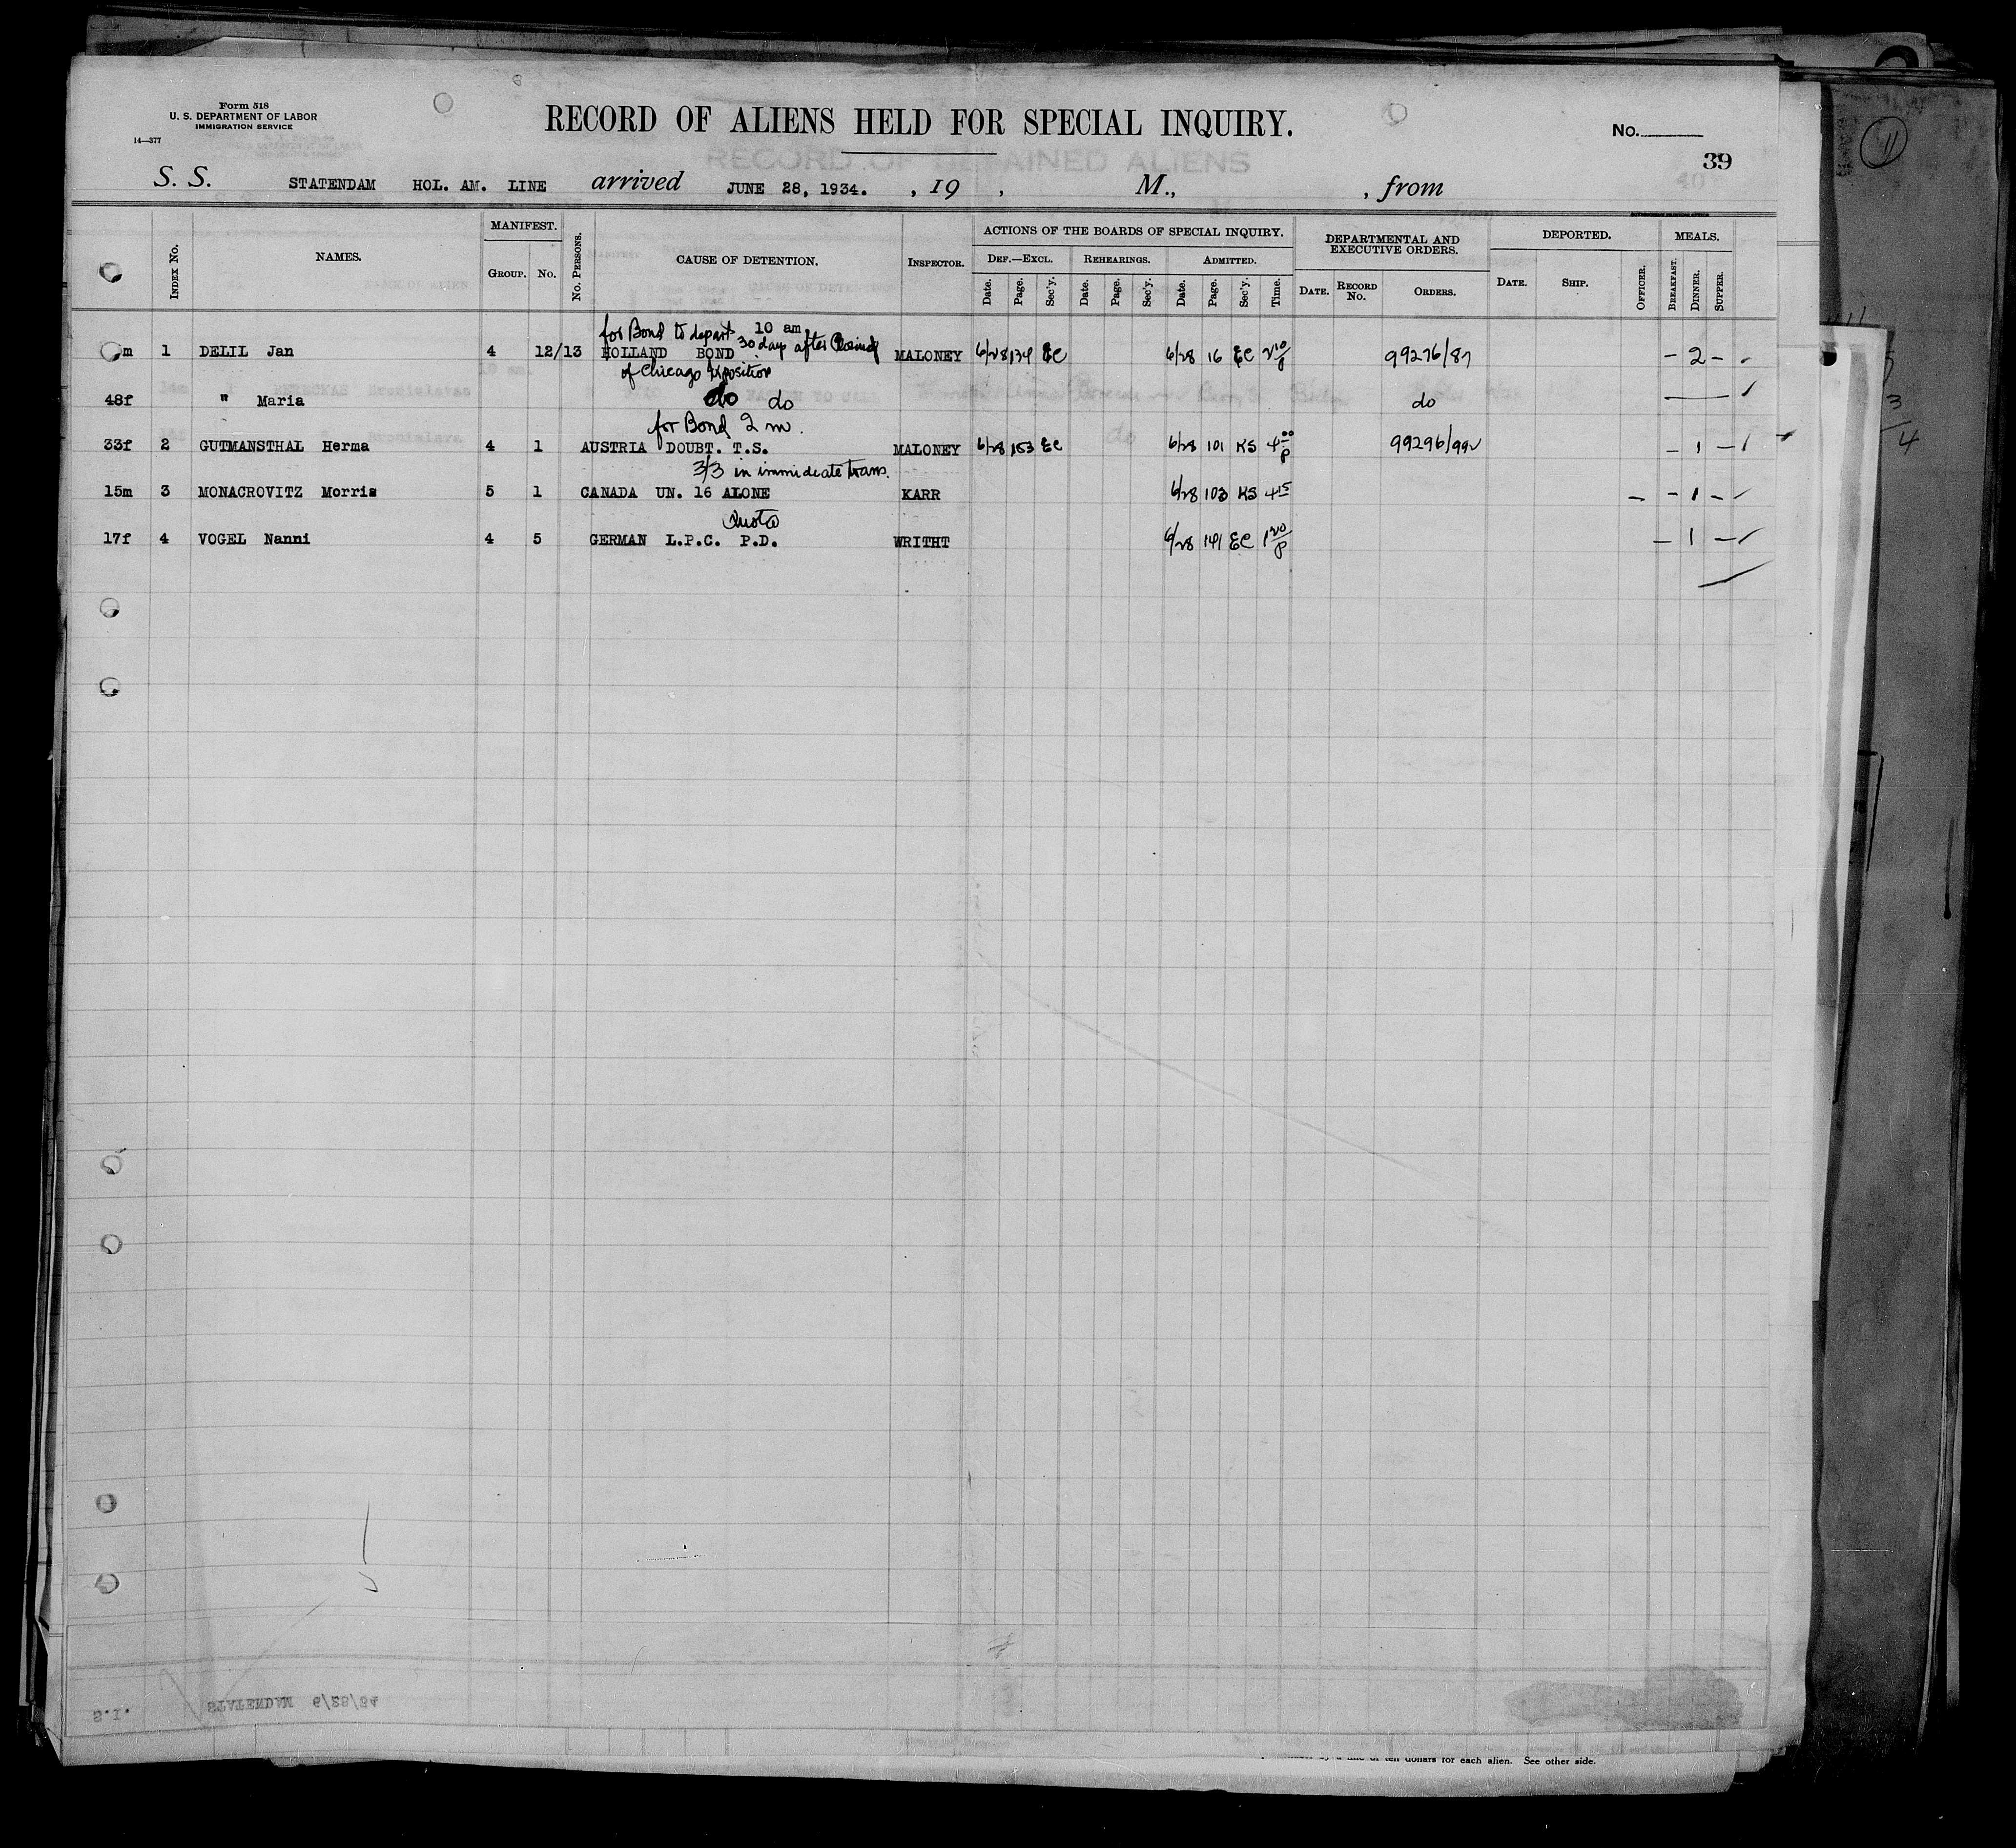 Form 518
U. S. DEPARTMENT OF LABOR
IMMIGRATION SERVICE
14—377
RECORD OF ALIENS HELD FOR SPECIAL INQUIRY.
No.
39
S. S. STATENDAM HOL. AM. LINE arrived JUNE 28, 1934. , 19 , M., , from
INDEX No. NAMES. MANIFEST. GROUP. No. No. PERSONS. CAUSE OF DETENTION. INSPECTOR. ACTIONS OF THE BOARDS OF SPECIAL INQUIRY. DEPARTMENTAL AND EXECUTIVE ORDERS. DEPORTED. MEALS.
DEF.—EXCL. REHEARINGS. ADMITTED.
Date. Page. Sec'y. Date. Page. Sec'y. Date. Page. Sec'y. Time. DATE. RECORD No. ORDERS. DATE. SHIP. OFFICER. BREAKFAST. DINNER. SUPPER.
for Bond to depart 10 am
30 days after
m 1 DELIL Jan 4 12/13 HOLLAND BOND MALONEY 6/28 134 EC 6/28 16 EC 2 10/P 99276/87 – 2 –
of Chicago Exposition
48f " Maria do do do
for Bond 2 m.
33f 2 GUTMANSTHAL Herma 4 1 AUSTRIA DOUBT. T.S. MALONEY 6/28 153 EC 6/28 101 KS 4 00/P 99296/992 – 1 –
3/3 in immideate trans.
15m 3 MONACROVITZ Morris 5 1 CANADA UN. 16 ALONE KARR 6/28 103 KS 4 15 – – 1 –
Quota
17f 4 VOGEL Nanni 4 5 GERMAN L.P.C. P.D. WRITHT 6/28 141 EC 1 20/P – 1 –
S.I. STATENDAM 6/28/34
ten dollars for each alien. See other side.
11
3/4